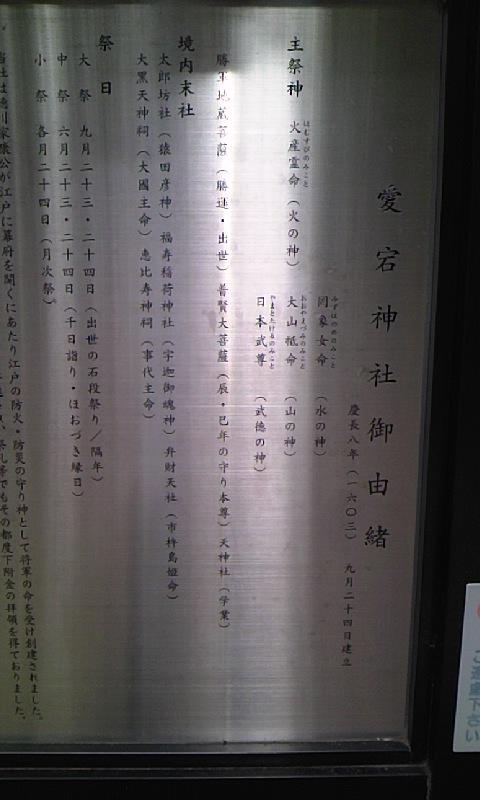 愛宕神社御由緒
慶長八年（一六〇三） 九月二十四日建立
罔象女命（水の神）
みずはのめのみこと
主祭神 火産霊命（火の神） 大山祇命（山の神）
ほむすびのみこと おおやまづみのみこと
日本武尊（武徳の神）
やまとたけるのみこと
勝軍地蔵菩薩（勝運・出世） 普賢大菩薩（辰・巳年の守り本尊） 天神社（学業）
境内末社
太郎坊社（猿田彦神） 福寿稲荷神社（宇迦御魂神） 弁財天社（市杵島姫命）
大黒天神祠（大國主命） 恵比寿神祠（事代主命）
祭日
大祭 九月二十三・二十四日（出世の石段祭り／隔年）
中祭 六月二十三・二十四日（千日詣り・ほおづき縁日）
小祭 各月二十四日（月次祭）
当社は徳川家康公が江戸に幕府を開くにあたり江戸の防火・防災の守り神として将軍の命を受け創建されました。
祭礼等でもその都度下附金の拝領を得ておりました。